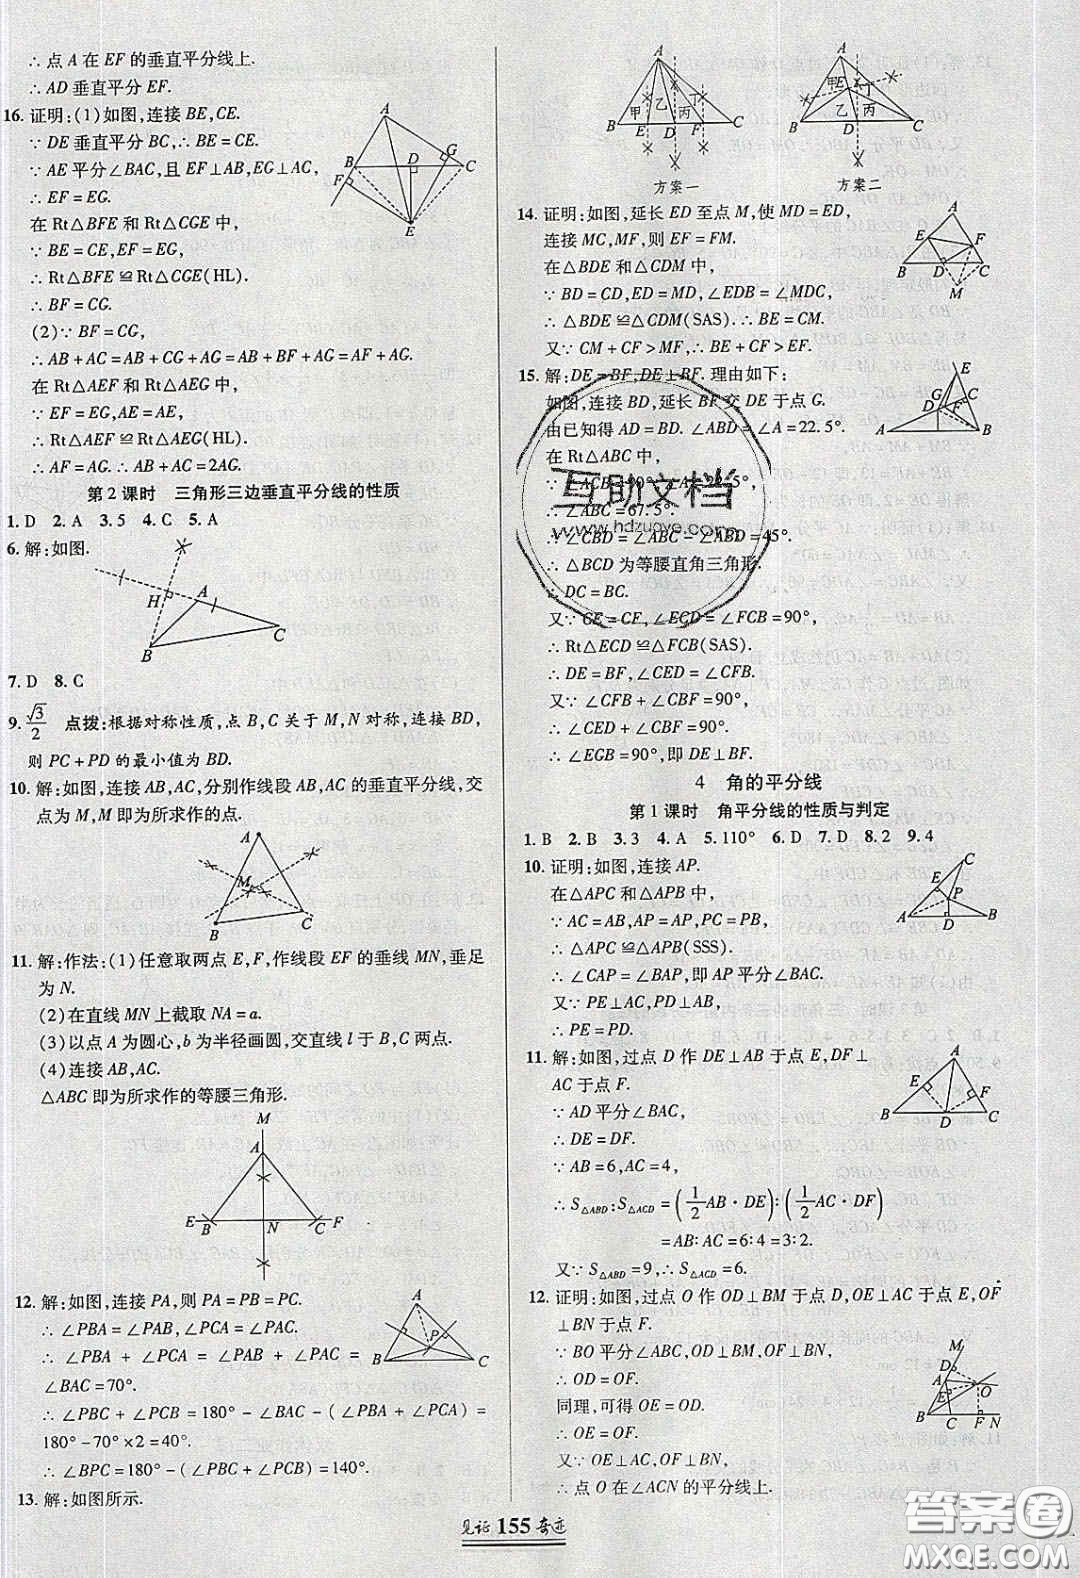 ∴点A在EF的垂直平分线上.
∴AD垂直平分EF.
16.证明:(1)如图,连接BE,CE.
∵DE垂直平分BC,∴BE=CE.
∵AE平分∠BAC,且EF⊥AB,EG⊥AC,
∴EF=EG.
在Rt△BFE和Rt△CGE中,
∵BE=CE,EF=EG,
∴Rt△BFE≌Rt△CGE(HL).
∴BF=CG.
(2)∵BF=CG,
∴AB+AC=AB+CG+AG=AB+BF+AG=AF+AG.
在Rt△AEF和Rt△AEG中,
∵EF=EG,AE=AE,
∴Rt△AEF≌Rt△AEG(HL).
∴AF=AG.∴AB+AC=2AG.
A
B
D
G
C
F
E
第2课时 三角形三边垂直平分线的性质
1.D 2.A 3.5 4.C 5.A
6.解:如图.
H
A
C
B
7.D 8.C
9.√3/2 点拨:根据对称性质,点B,C关于M,N对称,连接BD,
则PC+PD的最小值为BD.
10.解:如图,连接AB,AC,分别作线段AB,AC的垂直平分线,交
点为M,M即为所求作的点.
A
M
B
C
11.解:作法:(1)任意取两点E,F,作线段EF的垂线MN,垂足
为N.
(2)在直线MN上截取NA=a.
(3)以点A为圆心,b为半径画圆,交直线l于B,C两点.
(4)连接AB,AC.
△ABC即为所求作的等腰三角形.
M
A
E B N C F
12.解:如图,连接PA,则PA=PB=PC.
∴∠PBA=∠PAB,∠PCA=∠PAC.
∴∠PBA+∠PCA=∠PAB+∠PAC=
∠BAC=70°.
∴∠PBC+∠PCB=180°-∠BAC-(∠PBA+∠PCA)=
180°-70°×2=40°.
∴∠BPC=180°-(∠PBC+∠PCB)=140°.
A
P
B
C
13.解:如图所示.
A
甲 乙 丙 丁
B E D F C
方案一
A
甲 E 丁
乙 丙
B D C
方案二
14.证明:如图,延长ED至点M,使MD=ED,
连接MC,MF,则EF=FM.
在△BDE和△CDM中,
∵BD=CD,ED=MD,∠EDB=∠MDC,
∴△BDE≌△CDM(SAS).∴BE=CM.
又∵CM+CF>MF,∴BE+CF>EF.
A
E
F
B D C
M
15.解:DE=BF,DE⊥BF.理由如下:
如图,连接BD,延长BF交DE于点G.
由已知得AD=BD.∠ABD=∠A=22.5°.
在Rt△ABC中,
∵∠ACB=90°,∠A=22.5°,
∴∠ABC=67.5°.
∴∠CBD=∠ABC-∠ABD=45°.
∴△BCD为等腰直角三角形.
∴DC=BC.
又∵CE=CF,∠ECD=∠FCB=90°,
∴Rt△ECD≌△FCB(SAS).
∴DE=BF,∠CED=∠CFB.
又∵∠CFB+∠CBF=90°,
∴∠CED+∠CBF=90°.
∴∠EGB=90°,即DE⊥BF.
E
G C
D F
A B
4 角的平分线
第1课时 角平分线的性质与判定
1.B 2.B 3.3 4.A 5.110° 6.D 7.D 8.2 9.4
10.证明:如图,连接AP.
在△APC和△APB中,
∵AC=AB,AP=AP,PC=PB,
∴△APC≌△APB(SSS).
∴∠CAP=∠BAP,即AP平分∠BAC.
又∵PE⊥AC,PD⊥AB,
∴PE=PD.
C
E
P
A D B
11.解:如图,过点D作DE⊥AB于点E,DF⊥
AC于点F.
∵AD平分∠BAC,
∴DE=DF.
∵AB=6,AC=4,
∴S△ABD:S△ACD=(1/2AB·DE):(1/2AC·DF)
=AB:AC=6:4=3:2.
又∵S△ABD=9,∴S△ACD=6.
A
E F
B D C
12.证明:如图,过点O作OD⊥BM于点D,OE⊥AC于点E,OF
⊥BN于点F.
∵BO平分∠ABC,OD⊥BM,OF⊥BN,
∴OD=OF.
同理,可得OE=OD.
∴OE=OF.
又∵OE⊥AC,OF⊥BN,
∴点O在∠ACN的平分线上.
M
D
A
E O
B C F N
互助文档
www.hdzuoye.com
见证155奇迹
答案圈
MXQE.COM